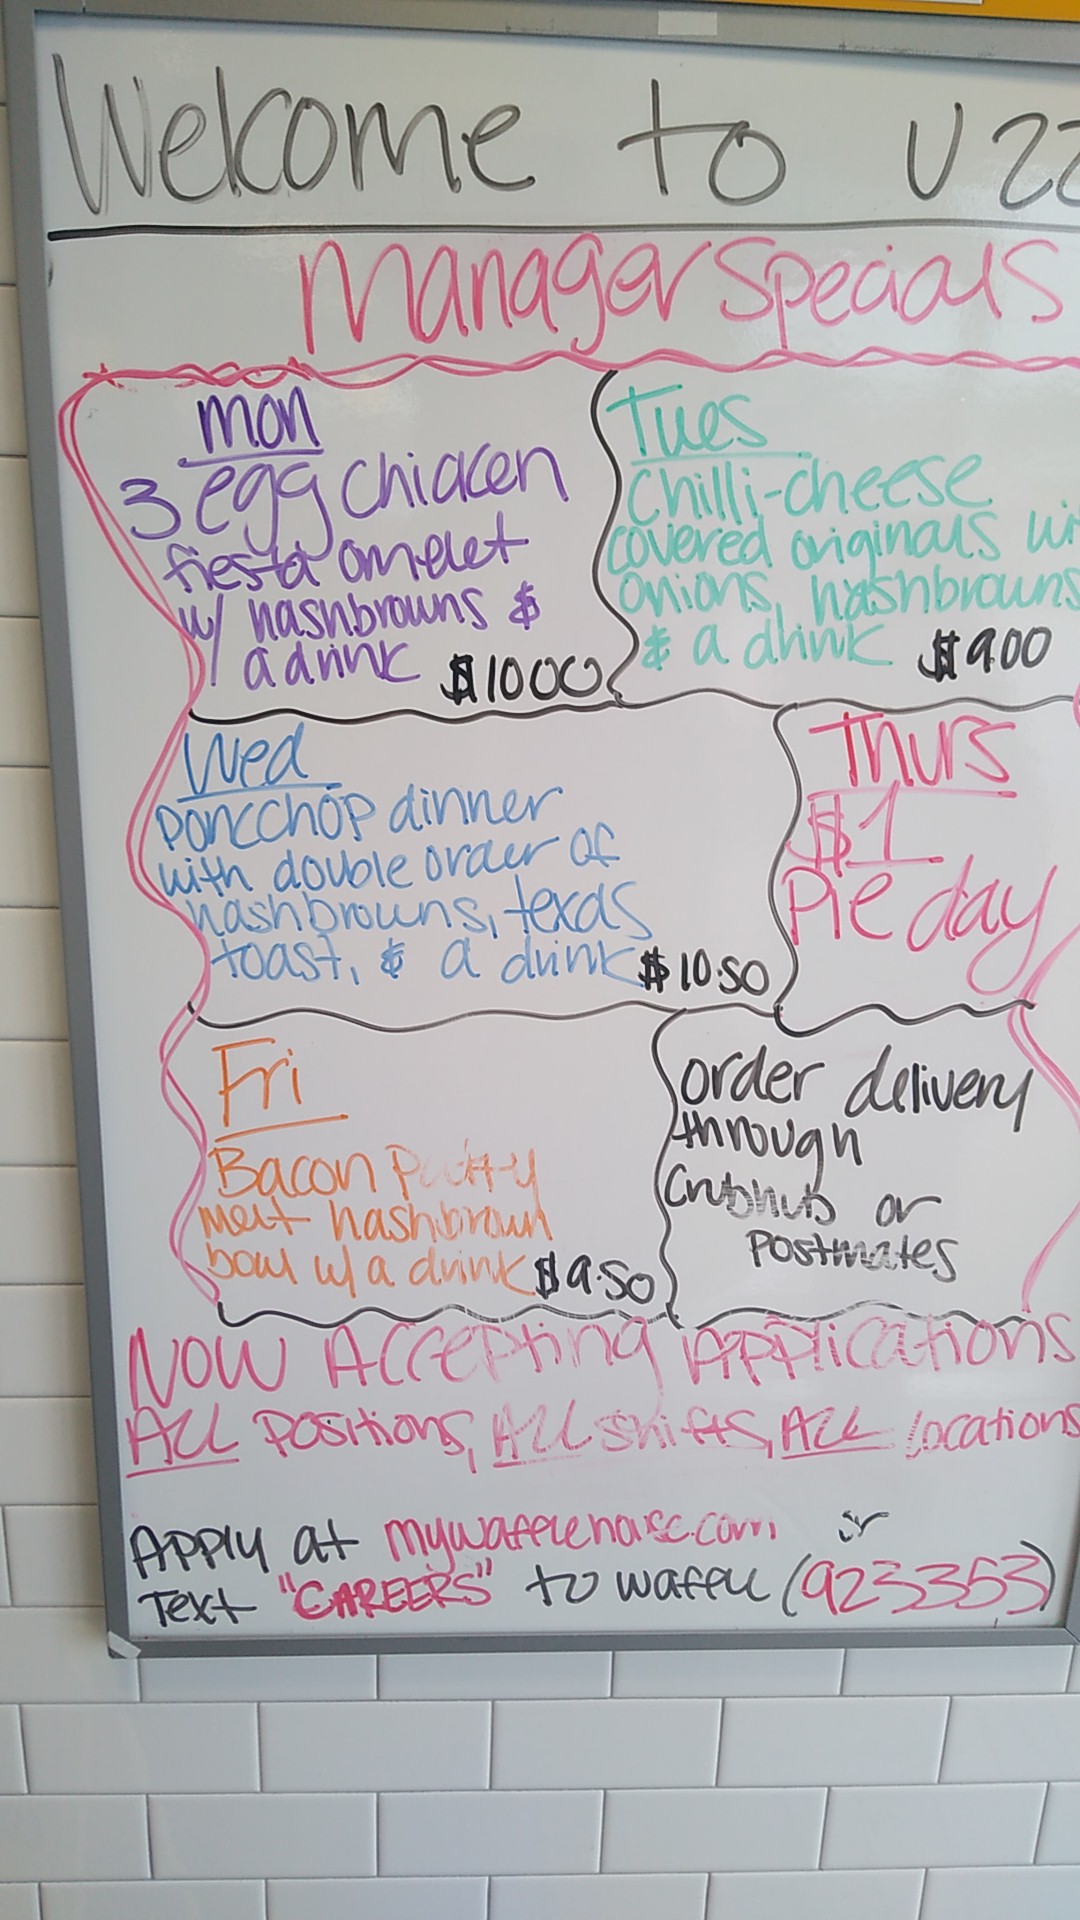 Welcome to U22
Manager Specials
Mon
3 egg chicken
fiesta omelet
w/ hashbrowns &
a drink $10.00
Tues
Chilli-cheese
covered originals wi
onions, hashbrowns
& a drink $9.00
Wed
Porkchop dinner
with double order of
hashbrowns, texas
toast, & a drink $10.50
Thurs
$1
Pie day
Fri
Bacon Patty
melt hashbrown
bowl w/ a drink $9.50
order delivery
through
Grubhub or
Postmates
Now Accepting Applications
ALL Positions, ALL shifts, ALL locations
Apply at mywafflehouse.com or
Text "CAREERS" to waffle (923353)